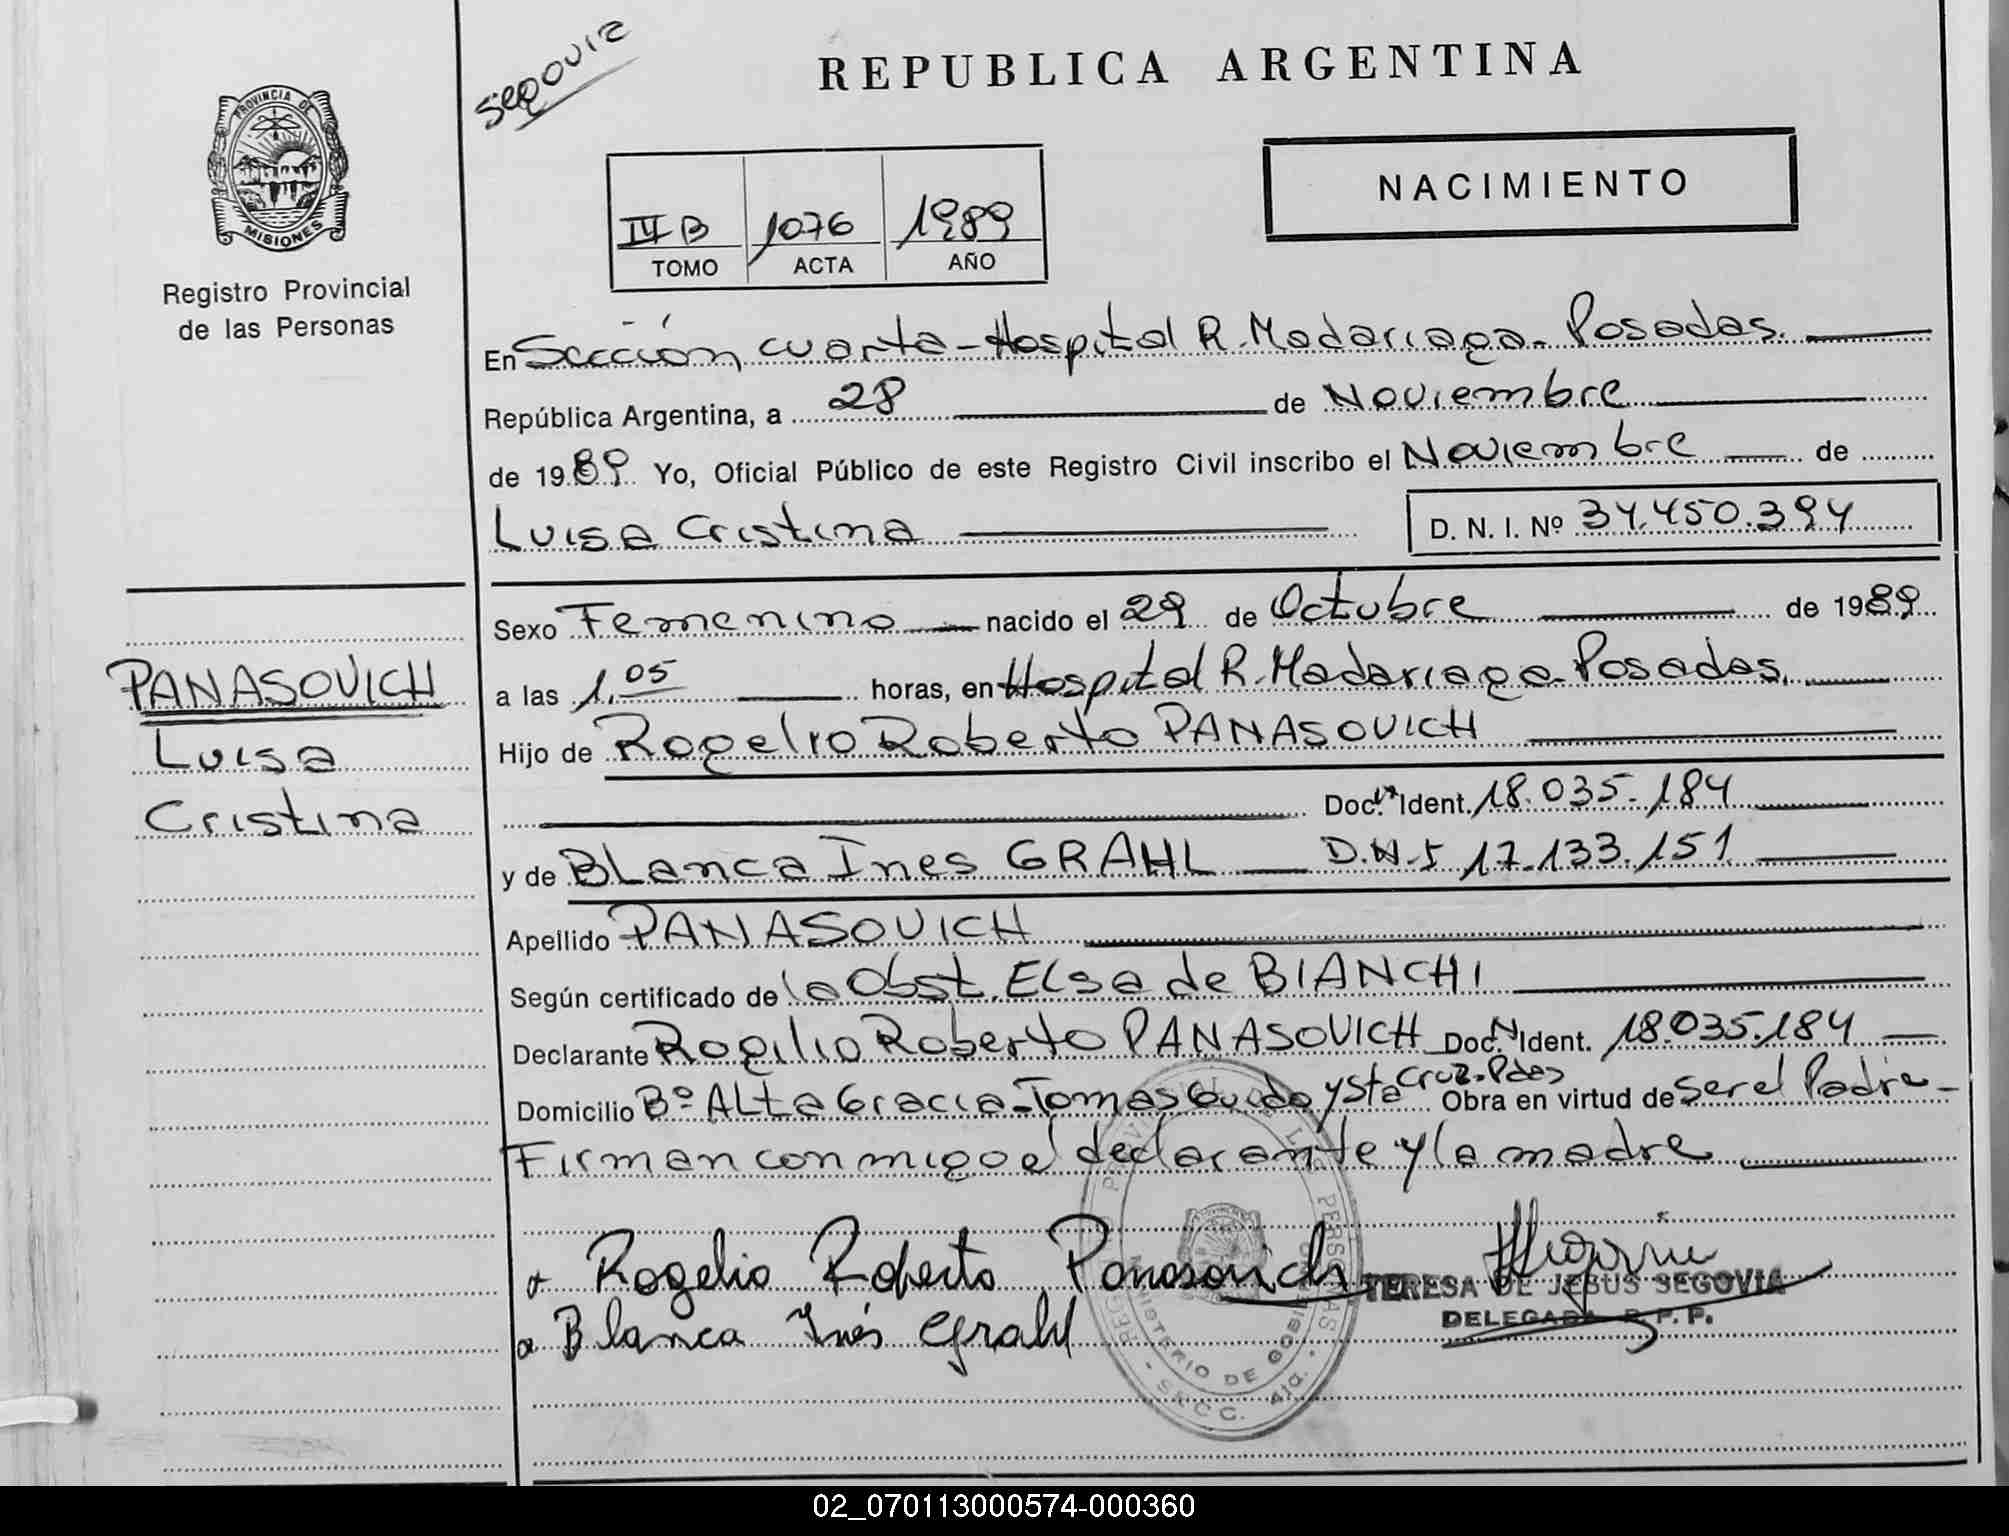 Segovia
REPUBLICA ARGENTINA
PROVINCIA DE
MISIONES
Registro Provincial
de las Personas
NACIMIENTO
1076 1989
TOMO ACTA AÑO
En Sección cuarta - Hospital R. Madariaga - Posadas.
República Argentina, a 28 de Noviembre
de 1989 Yo, Oficial Público de este Registro Civil inscribo el Noviembre de
Luisa Cristina D. N. I. Nº 34.450.394
Sexo Femenino nacido el 29 de Octubre de 1989
a las 1.05 horas, en Hospital R. Madariaga - Posadas.
Hijo de Rogelio Roberto PANASOVICH
Doc. Ident. 18.035.184
y de Blanca Ines GRAHL D.N.I 17.133.151
Apellido PANASOVICH
Según certificado de la Obst. Elsa de BIANCHI
Declarante Rogelio Roberto PANASOVICH Doc. Ident. 18.035.184
Domicilio Bº Alta Gracia - Tomas Guido y Sta Cruz - Pdas Obra en virtud de ser el Padre -
Firman conmigo el declarante y la madre
PANASOVICH
Luisa
Cristina
Rogelio Roberto Panasovich
Blanca Inés Grahl
TERESA DE JESUS SEGOVIA
DELEGADA R. P. P.
MINISTERIO DE GOBI
SECC. 4ta.
02_070113000574-000360